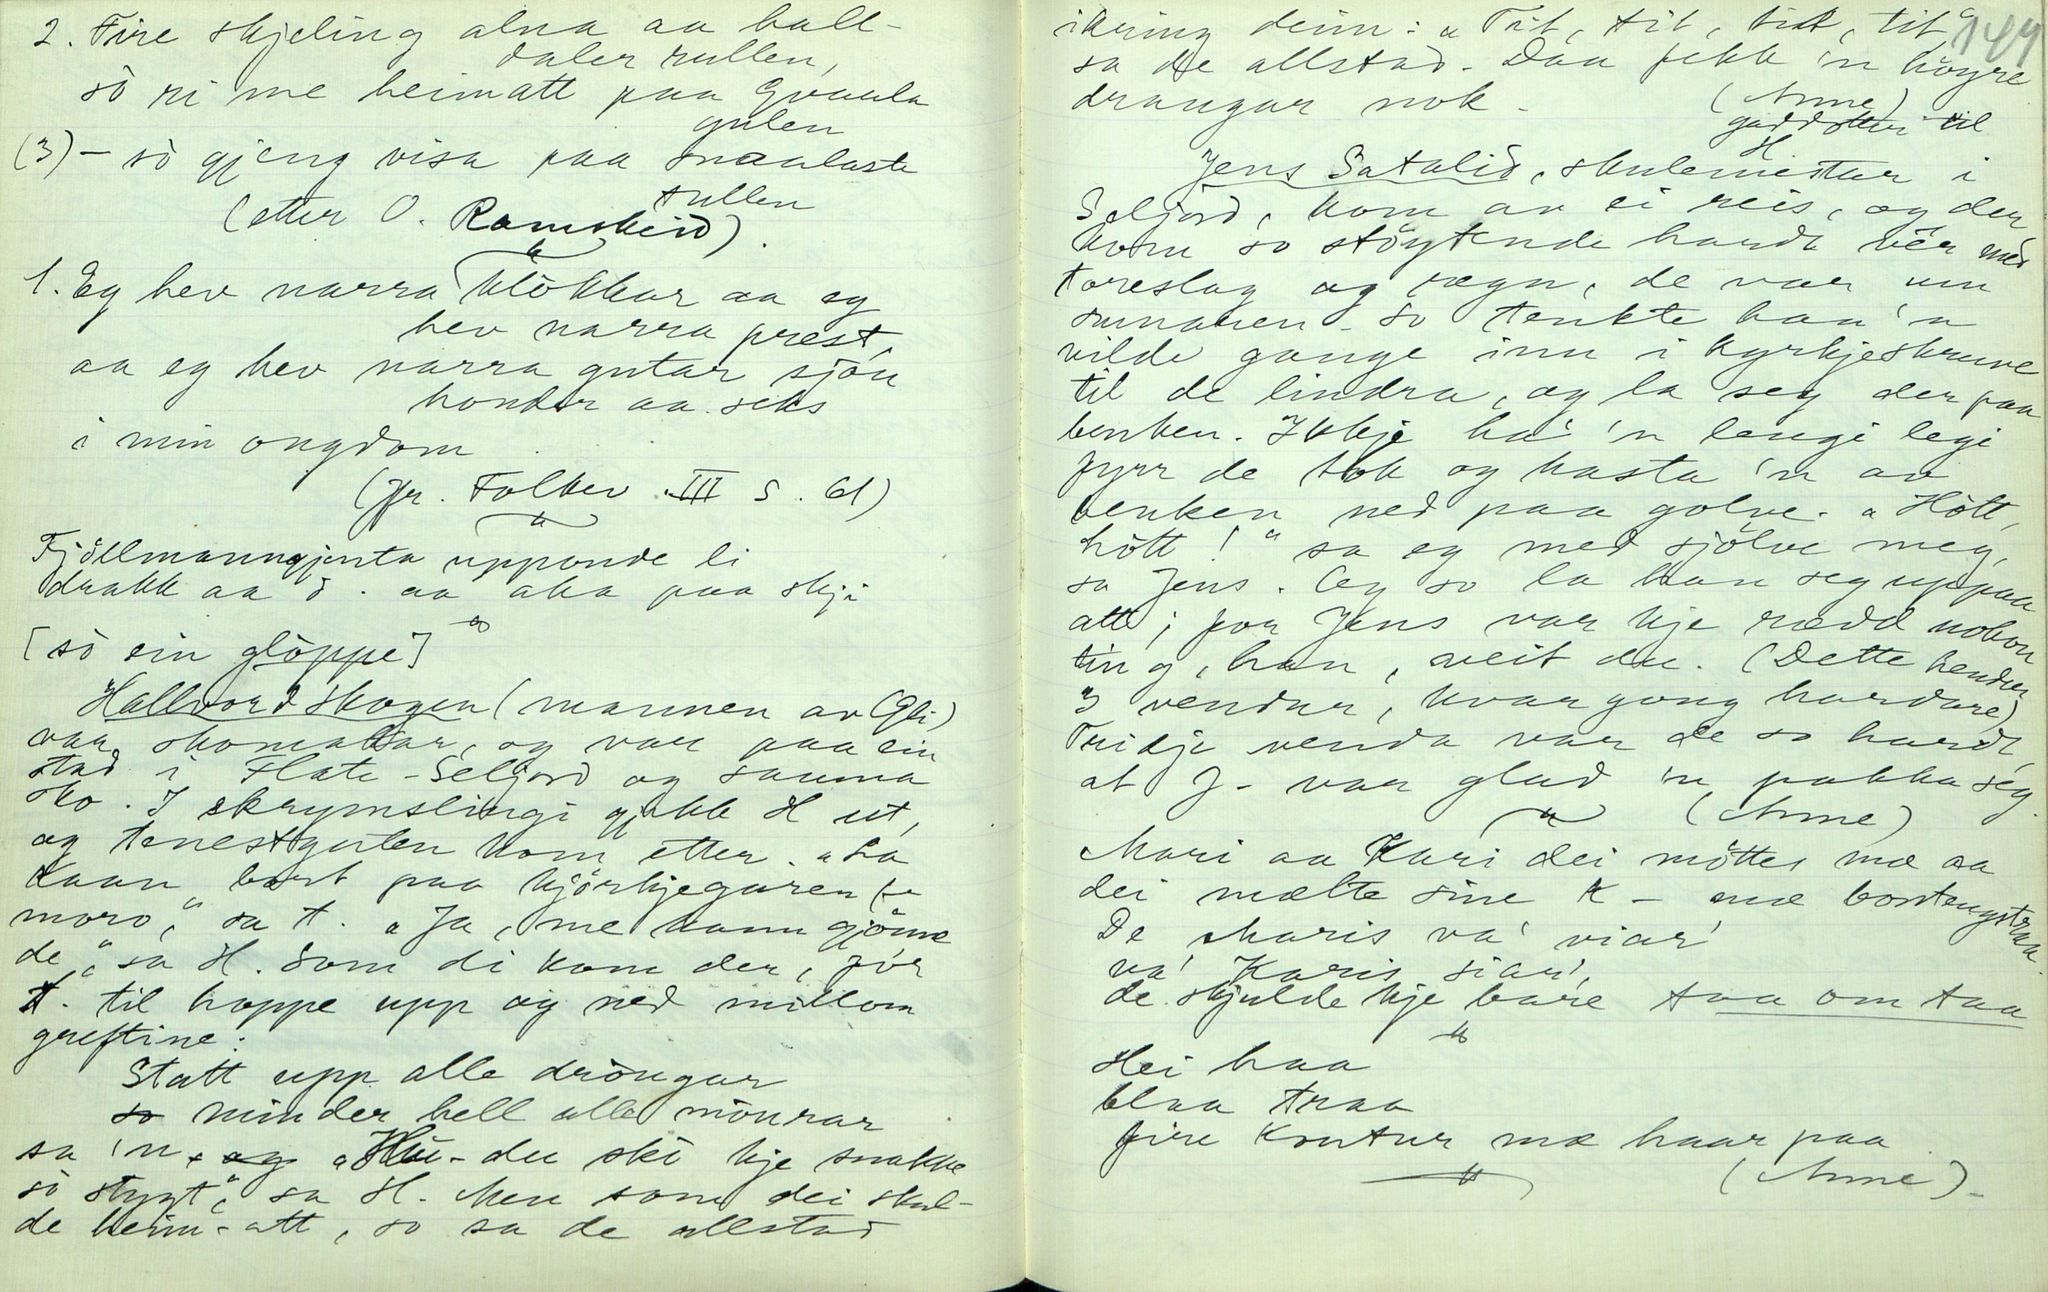 2. Fire skjeling alna aa hall-
daler rullen,
sò ri me heimatt paa Graaula
gulen
(3) – sò gjeng visa paa snaalaste
tullen
(etter O. Ramskeid).
1. Eg hev narra klòkkar aa eg
hev narra prest,
aa eg hev narra gutar sjòu
hondr aa seks
i min ongdom
(jfr. Folkev. III s. 61)
Fjöllmanngjenta upponde li
drakk aa ò . aa aka paa skji
[sò ein glòppe]
Hallvord Skogen (mannen av Gli)
var skomakar, og var paa ein
stad i Flate-Seljord og sauma
sko. I skrymslingi gjekk H ut,
og tenestguten kom etter. "La
kaan bort paa kjörkjegaren fe
moro," sa t. "Ja, me kann gjöme
de," sa H. Som di kom der, fór
t. til hoppe upp og ned millom
greftine:
Statt upp alle dròugar
so minder hell alle mòurar
sa 'n, og "Hui – du ski kje snakke
sò stygt", sa H. Men som dei skul-
de heim-att, so sa de allstad
ikring deim: "Tit, tit, tit, tit"
149
sa de allstad. Daa fekk 'n höyre
draugar nok –
(Anne)
til
Jens Satalid, skulemeistar i
Seljord, kom av ei reis, og der
kom so stöytende hardt vêr med
toreslag og regn, de var um
sumaren – So tenkte han 'n
vilde gange inn i kyrkjeskruve
til de lindra, og la seg der paa
benken. Ikkje ha' 'n lengi legi
fyrr de tok og kasta 'n av
benken ned paa golve. "Hött,
hött!" sa eg med sjölve meg,
sa Jens. Og so la han seg uppaa
att; for Jens var kje rædd nokon
ting, han, veit du. (Dette hender
3 vendur, kvar gong hardare)
Tridje venda var de so hardt,
at J. var glad 'n pakka seg.
(Anne)
Mari aa Kari dei möttes mæ aa
dei mælte sine k – mæ bordengstraa.
De Maris va' viar'
va' Karis siar',
de skjulde kje bare taa om taa
Hei haa
blaa traa
fire knutur mæ haar paa
(Anne) –